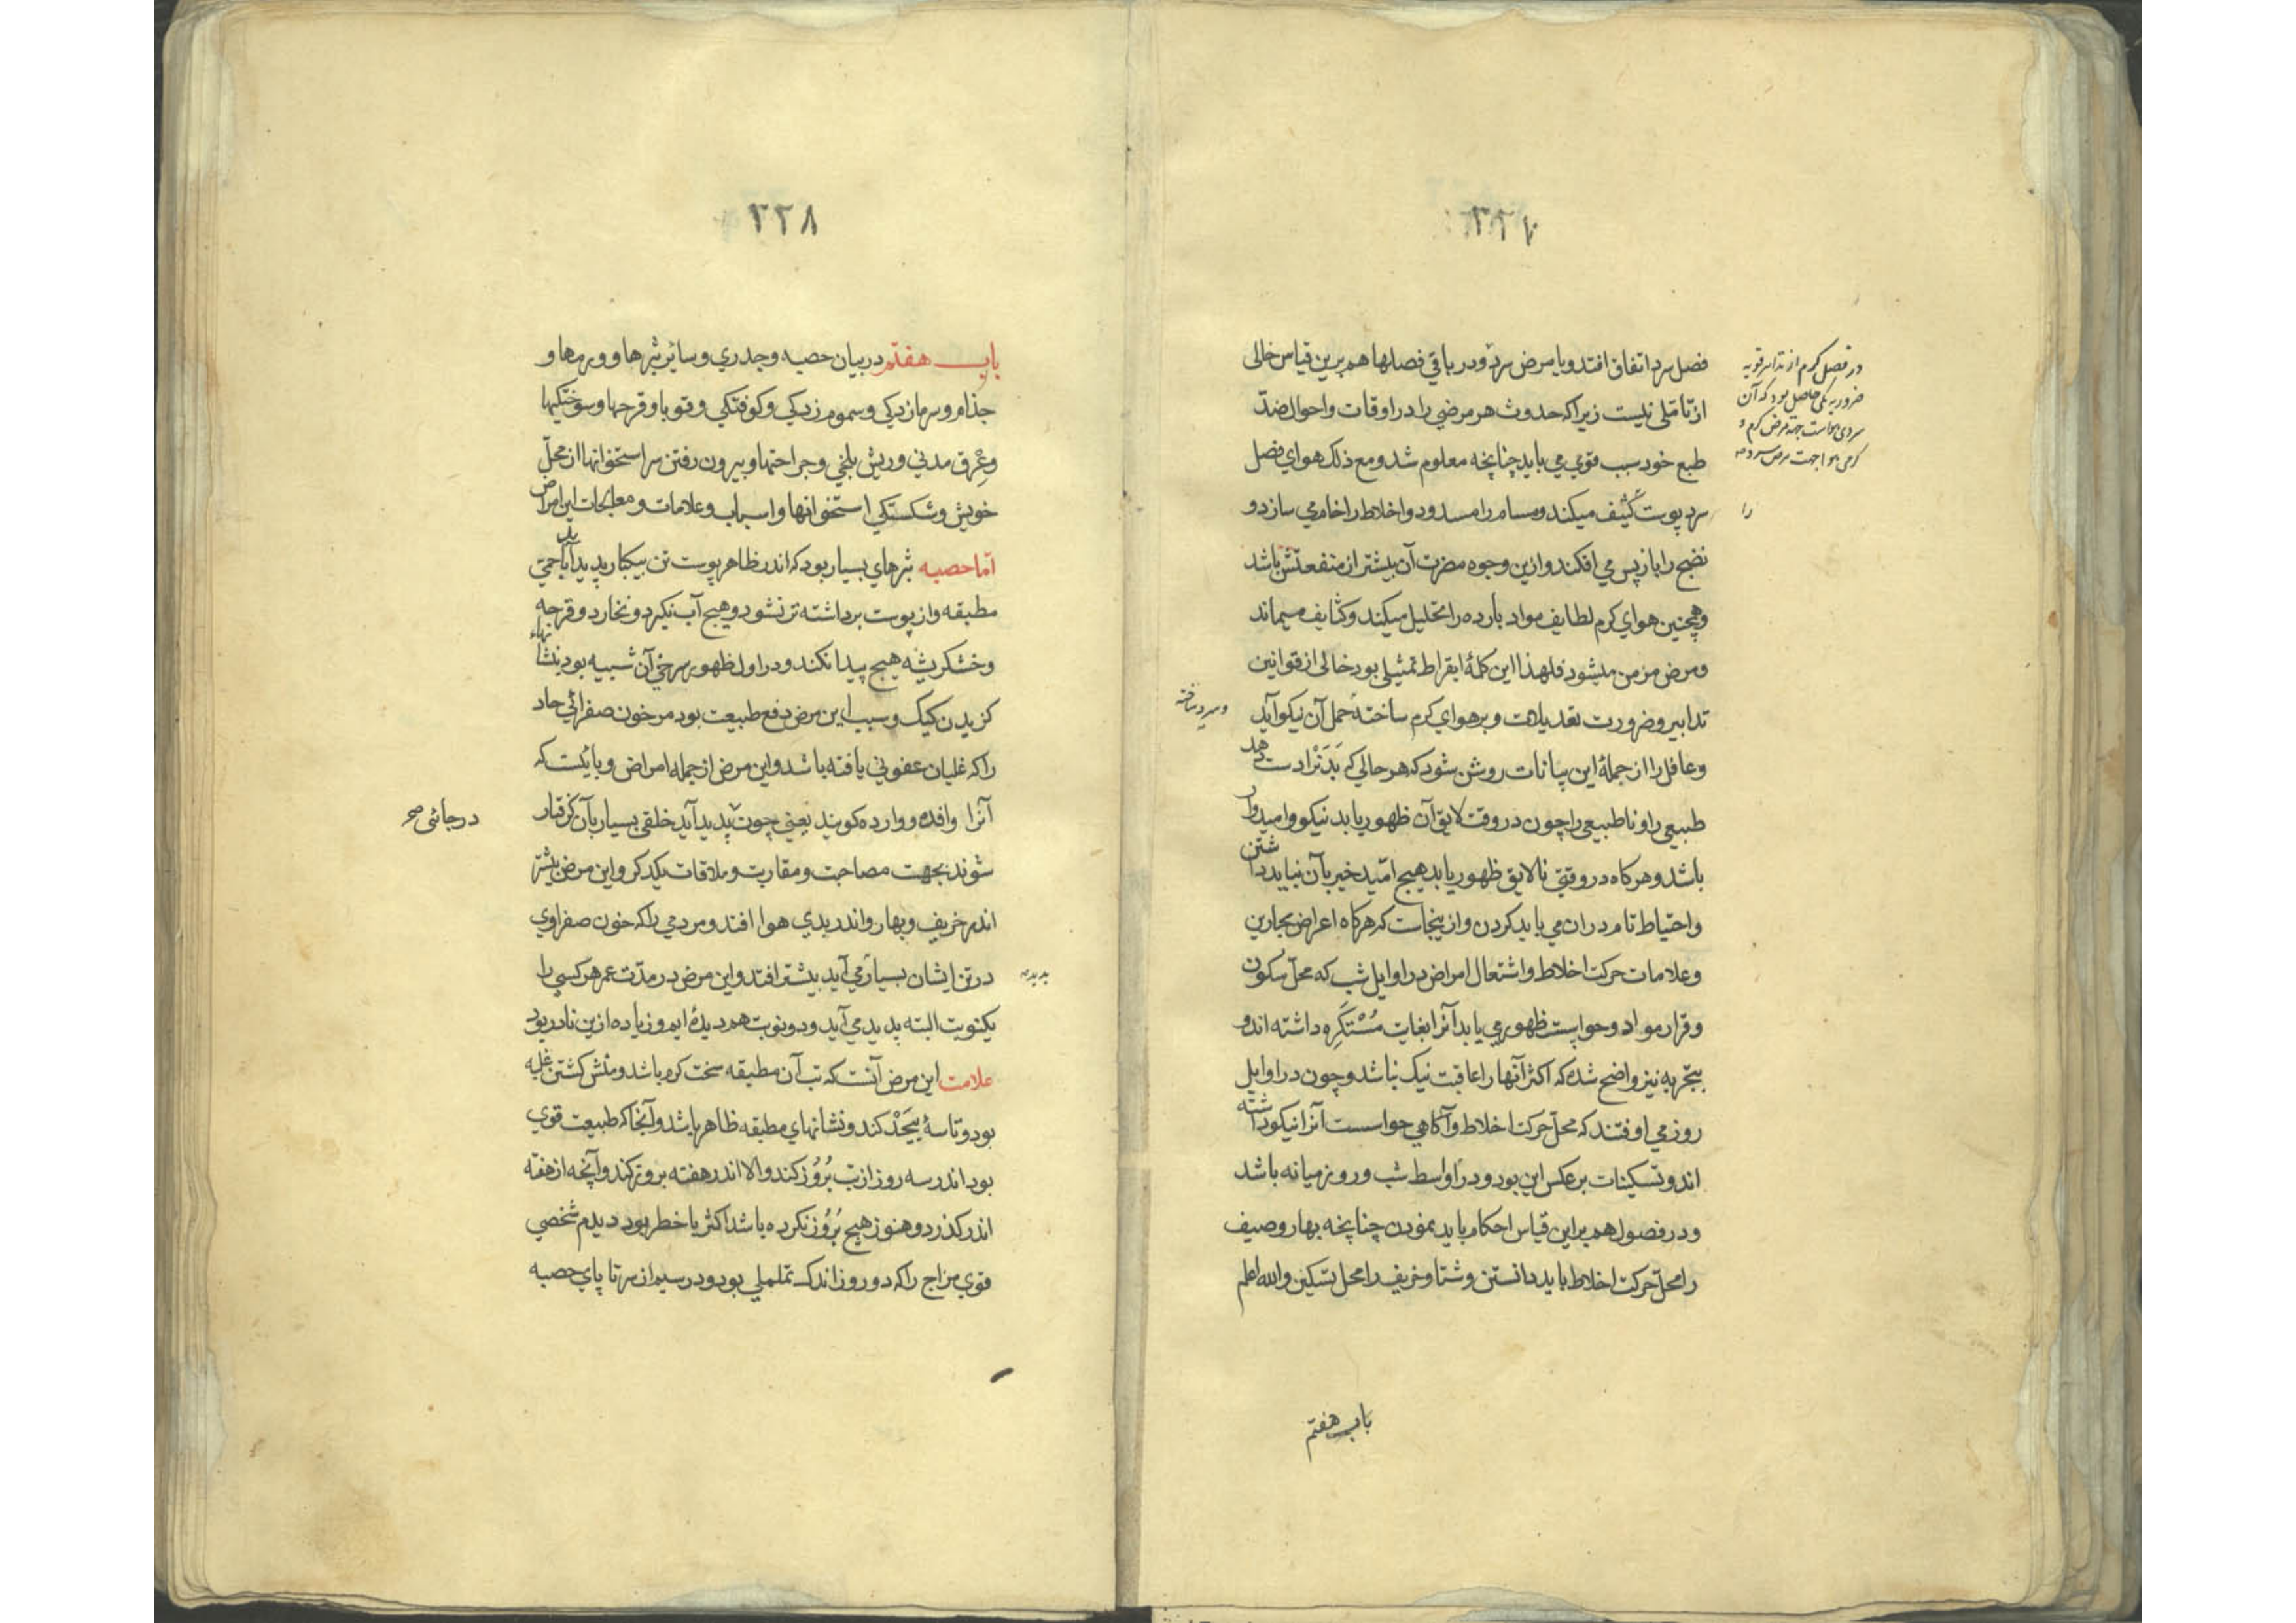 ٢٢٧
فصل سرد اتفاق افتد و یا مرض سرد و در باقي فصلها هم برین قیاس خالی
از تأمّلی نیست زیرا که حدوث هر مرضي را در اوقات و احوال ضدّ
طبع خود سبب قوي مي باید چنانچه معلوم شد و مع ذلک هواي فصل
سرد پوست کثیف میکند و مسام را مسدود و اخلاط را خام مي سازد و
نضج را باز پس مي افکند و ازین وجوه مضرت آن بیشتر از منفعتش باشد
و همچنین هواي کرم لطایف مواد بارده را تحلیل میکند و کثایف میماند
و مرض مزمن میشود فلهذا این کلمهٔ ابقراط تمثیلی بود خالی از قوانین
تدابیر و ضرورت تعدیلات و بر هواي کرم ساخته حمل آن نیکو آید
و عاقل را از جملهٔ این بیانات روشن شود که هر حالي که بدنرا دست دهد
طبیعی را و ناطبیعی را چون در وقت لایق آن ظهور یابد نیکو و امیدوار
باشد و هر کاه در وقتی نالایق ظهور یابد هیچ امّید خیر بآن نباید داشتن
و احتیاط تام دران مي باید کردن و از ینجاست که هر کاه اعراض بحارین
و علامات حرکت اخلاط و اشتعال امراض در اوایل شب که محلّ سکون
و قرار مواد و حواسست ظهور مي یابد آنرا بغایت مُسْتَکرِه داشته اند و
بتجربه نیز واضح شده که اکثر آنها را عاقبت نیک نباشد و چون در اوایل
روز مي اوفتند که محلّ حرکت اخلاط و آکاهي حواسست آنرا نیکو داشته
اند و تسکینات بر عکس این بود و در اواسط شب و روز میانه باشد
و در فصول هم براین قیاس احکام باید نمودن چنانچه بهار و صیف
را محلّ حرکت اخلاط باید دانستن و شتا و خریف را محل تسکین والله اعلم
باب هفتم
در فصل کرم از تدابیر قویه
ضروریه کمی حاصل بود که آن
سردی هواست جهة مرض کرم و
کرمی هوا جهت مرض سرد
را
و سرد ساخته
٢٢٨
باب هفتم در بیان حصبه و جدري و سائر بثرها و ورمها و
جذام و سرمازدکي و سموم زدکي و کوفتکي و قوبا و قرحها و سوختکیها
و عِرْق مدني و ریش بلخي و جراحتها و بیرون رفتن سر استخوانها از محلّ
خویش و شکستکي استخوانها و اسباب و علامات و معالجات این امراض
امّا حصبه بثرهاي بسیار بود که اندر ظاهر پوست تن بیکبار پدید آید با حمّي
مطبقه و از پوست برداشته تر نشود و هیچ آب نکیرد و نخارد و قرحه
و خشکریشه هیچ پیدا نکند و در اول ظهور سرخي آن شبیه بود بنشانهاء
کزیدن کیک و سبب این مرض دفع طبیعت بود مر خون صفرائي حاد
را که غلیان عفونی یافته باشد و این مرض از جمله امراض وبائیست که
آنرا وافده و وارده کویند یعني چون پدید آید خلقی بسیار بآن کرفتار
شوند بجهت مصاحبت و مقاربت و ملاقات یکدکر و این مرض بیشتر
اندر خریف و بهار و اندر بدي هوا افتد و مردمي را که خون صفراوي
در تن ایشان بسیار مي آید بیشتر افتد و این مرض در مدّت عمر هر کسي را
یکنوبت البته پدید مي آید و دو نوبت هم دیده ایم و زیاده ازین نادر بود
علامت این مرض آنست که تب آن مطبقه سخت کرم باشد و منش کشتن غلبه
بود و تاسهٔ بیحد کند و نشانهاي مطبقه ظاهر باشد و آنجا که طبیعت قوي
بود اندر سه روز از تب بُرُوز کند والا اندر هفته بروز کند و آنچه از هفته
اندر کذرد و هنوز هیچ بُرُوز نکرده باشد اکثر با خطر بود دیدم شخصي
قوي مزاج را که دو روز اندک تململي بود و در سیم از سر تا پاي حصبه
در جائی صح